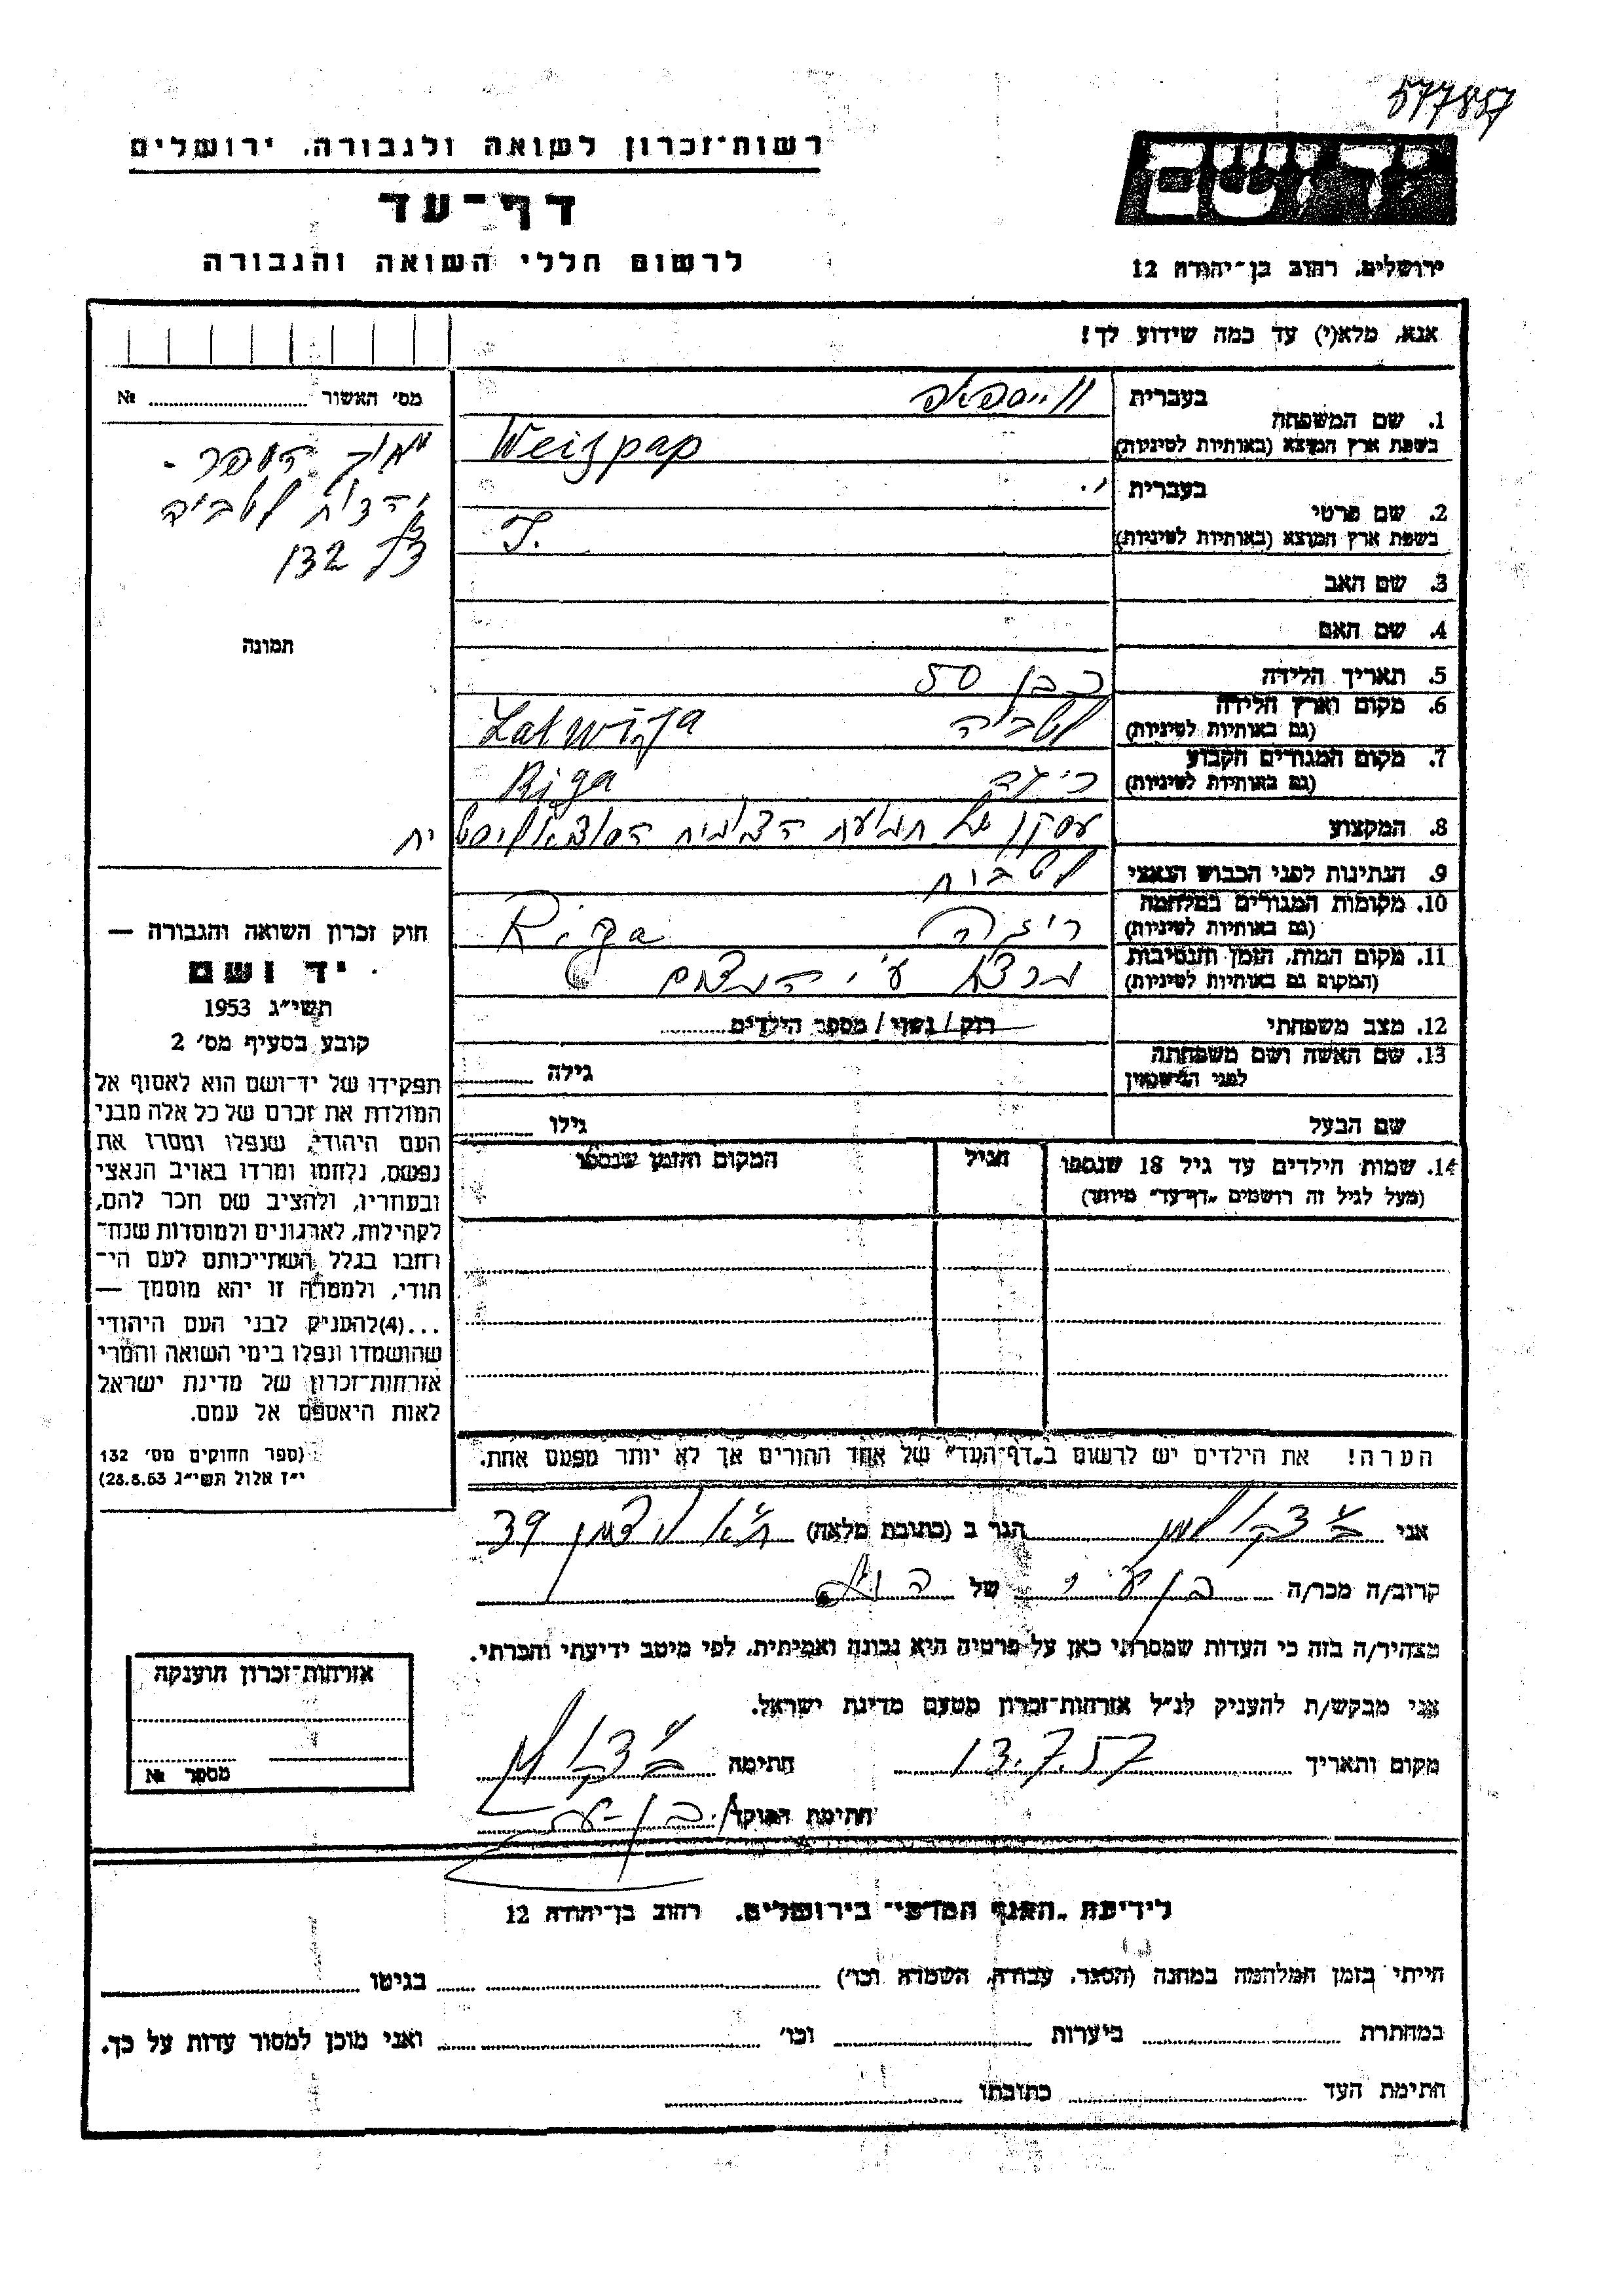 577857
רשות־זכרון לשואה ולגבורה, ירושלים
דף־עד
לרשום חללי השואה והגבורה
יד ושם
ירושלים, רחוב בן־יהודה 12
אנא, מלא(י) עד כמה שידוע לך!
מס' האשור № 
מתוך הספר -
יהדות לטביה
דף 132
תמונה
בעברית
1. שם המשפחה
בשפת ארץ המוצא (באותיות לטיניות)
Weispap
בעברית י.
2. שם פרטי
בשפת ארץ המוצא (באותיות לטיניות)
J.
3. שם האב
4. שם האם
5. תאריך הלידה כבן 50
6. מקום וארץ הלידה לטביה Latwija
(גם באותיות לטיניות)
7. מקום המגורים הקבוע ריגה Riga
(גם באותיות לטיניות)
8. המקצוע עסקן של תנועת הצ הסוצאליסטית
9. הנתינות לפני הכבוש הנאצי
10. מקומות המגורים במלחמה ריגה Riga
(גם באותיות לטיניות)
11. מקום המות, הזמן והנסיבות נרצח ע"י הנאצים
(המקום גם באותיות לטיניות)
12. מצב משפחתי רווק / נשוי / מספר הילדים
13. שם האשה ושם משפחתה
לפני הנישואין
גילה
שם הבעל גילו
14. שמות הילדים עד גיל 18 שנספו
(מעל לגיל זה רושמים „דף־עד" מיוחד)
הגיל
המקום והזמן שנספו
חוק זכרון השואה והגבורה —
יד ושם
תשי"ג 1953
קובע בסעיף מס' 2
תפקידו של יד־ושם הוא לאסוף אל
המולדת את זכרם של כל אלה מבני
העם היהודי, שנפלו ומסרו את
נפשם, נלחמו ומרדו באויב הנאצי
ובעוזריו, ולהציב שם וזכר להם,
לקהילות, לארגונים ולמוסדות שנח־
רבו בגלל השתייכותם לעם הי־
הודי, ולמטרה זו יהא מוסמך —
...(4)להעניק לבני העם היהודי
שהושמדו ונפלו בימי השואה והמרי
אזרחות־זכרון של מדינת ישראל
לאות היאספם אל עמם.
(ספר החוקים מס' 132
י"ז אלול תשי"ג 28.8.53)
הערה! את הילדים יש לרשום ב„דף־העד" של אחד ההורים אך לא יותר מפעם אחת.
אני הגר ב (כתובת מלאה) ת"א 39
קרוב/ה מכר/ה של
מצהיר/ה בזה כי העדות שמסרתי כאן על פרטיה היא נכונה ואמיתית, לפי מיטב ידיעתי והכרתי.
אני מבקש/ת להעניק לנ"ל אזרחות־זכרון מטעם מדינת ישראל.
מקום ותאריך 13.7.57 חתימה
חתימת הפוקד
אזרחות־זכרון הוענקה
מספר №
לידיעת „האגף המדעי" בירושלים, רחוב בן־יהודה 12
הייתי בזמן המלחמה במחנה (הסגר, עבודה, השמדה וכו') בגיטו
במחתרת ביערות וכו' ואני מוכן למסור עדות על כך.
חתימת העד כתובתו